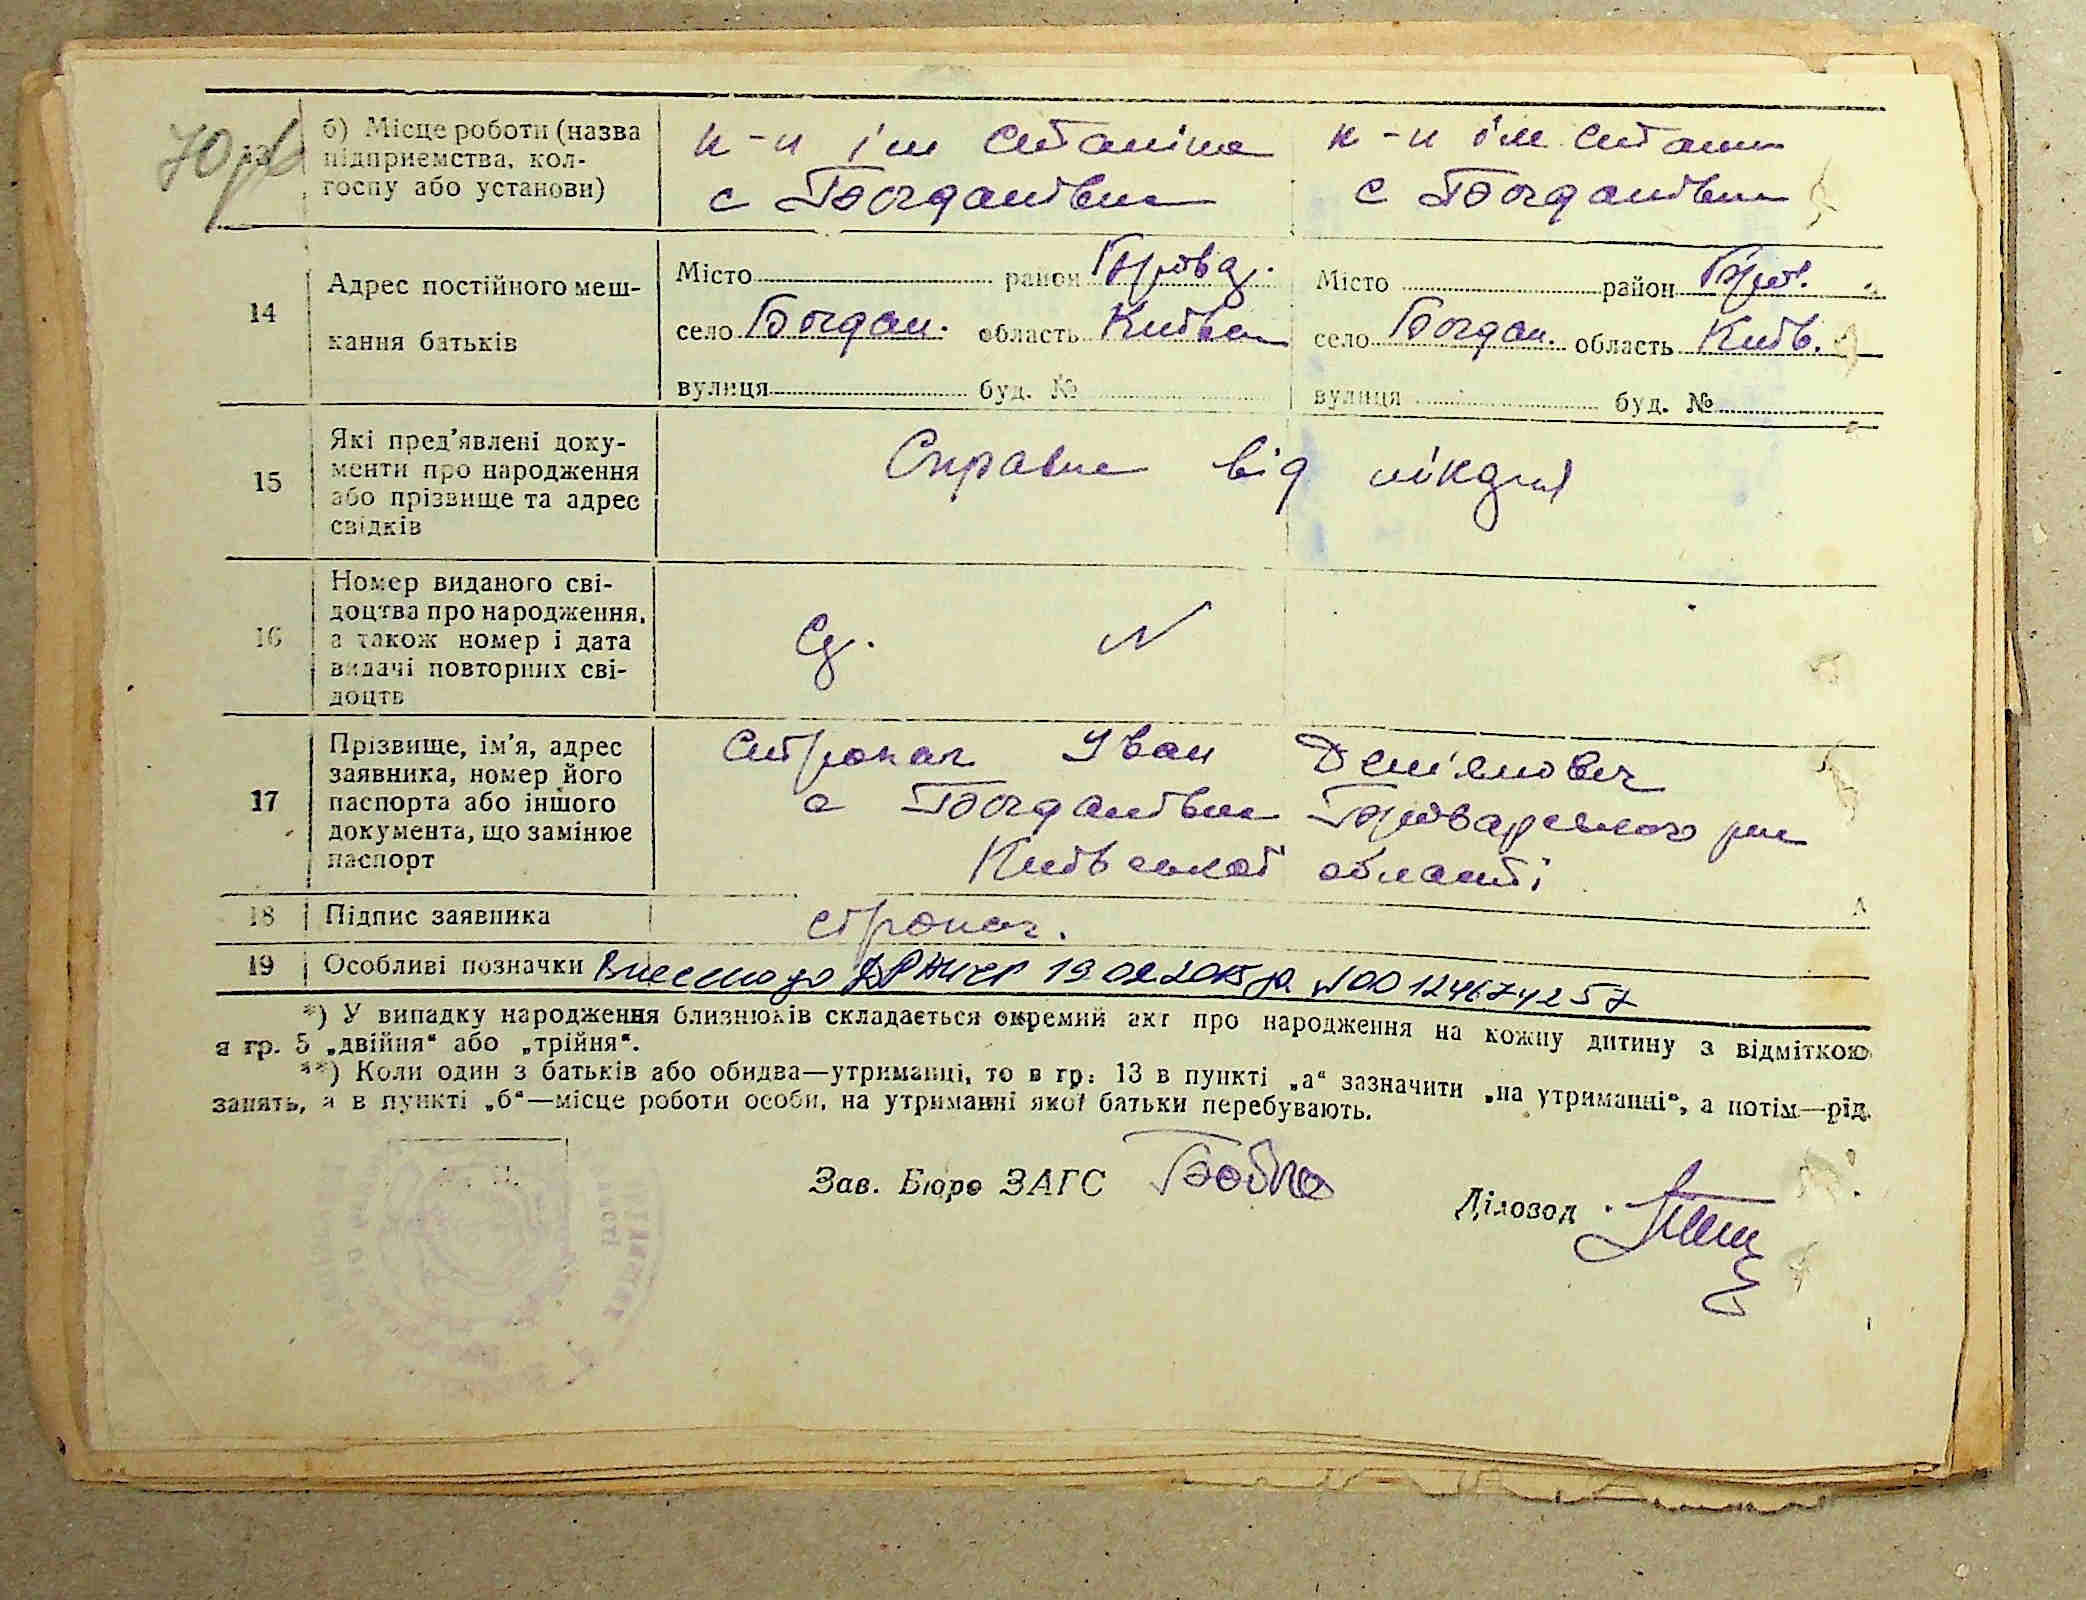 70 зв
13 б) Місце роботи (назва підприємства, колгоспу або установи)
к-п ім Сталіна
с Богданівка
к-п ім Сталіна
с Богданівка
14 Адрес постійного мешкання батьків
Місто район Бровар.
село Богдан. область Київська
вулиця буд. №
Місто район Бров.
село Богдан. область Київ.
вулиця буд. №
15 Які пред’явлені документи про народження або прізвище та адрес свідків
Справка від лікаря
16 Номер виданого свідоцтва про народження, а також номер і дата видачі повторних свідоцтв
N
17 Прізвище, ім’я, адрес заявника, номер його паспорта або іншого документа, що замінює паспорт
Іван Дем'янович
с Богданівка Броварського р-на
Київської області
18 Підпис заявника
19 Особливі позначки Внесено до ДРАЦСГ 19 02 2015 р. N00124674257
*) У випадку народження близнюків складається окремий акт про народження на кожну дитину з відміткою
в гр. 5 „двійня“ або „трійня“.
**) Коли один з батьків або обидва—утриманці, то в гр. 13 в пункті „а“ зазначити „на утриманні“, а потім—рід
занять, а в пункті „б“—місце роботи особи, на утриманні якої батьки перебувають.
Зав. Бюро ЗАГС
Діловод